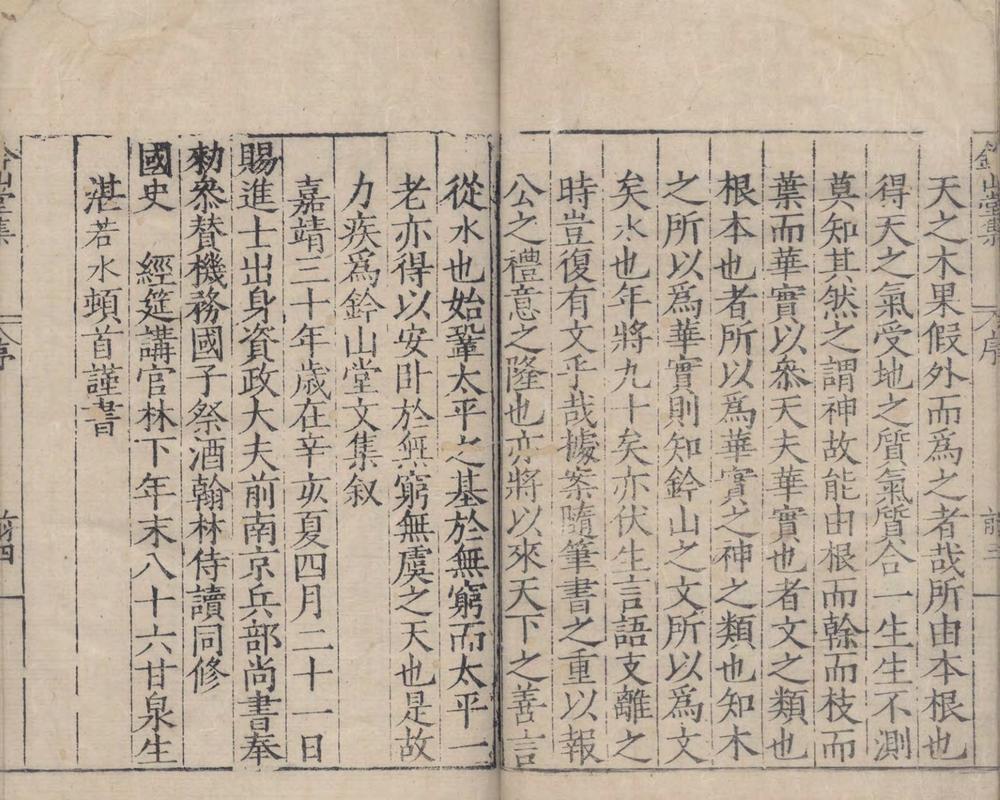 鈐山堂集 序
天之木果假外而爲之者哉所由本根也
得天之氣受地之質氣質合一生生不測
莫知其然之謂神故能由根而榦而枝而
葉而華實以叅天夫華實也者文之類也
根本也者所以爲華實之神之類也知木
之所以爲華實則知鈐山之文所以爲文
矣水也年將九十矣亦伏生言語支離之
時豈復有文乎哉據案隨筆書之重以報
公之禮意之隆也亦將以來天下之善言
從水也始鞏太平之基於無窮而太平一
老亦得以安卧於無窮無虞之天也是故
力疾爲鈐山堂文集叙
嘉靖三十年歲在辛亥夏四月二十一日
賜進士出身資政大夫前南京兵部尚書奉
勑叅替機務國子祭酒翰林侍讀同修
國史 經筵講官林下年末八十六甘泉生
湛若水頓首謹書